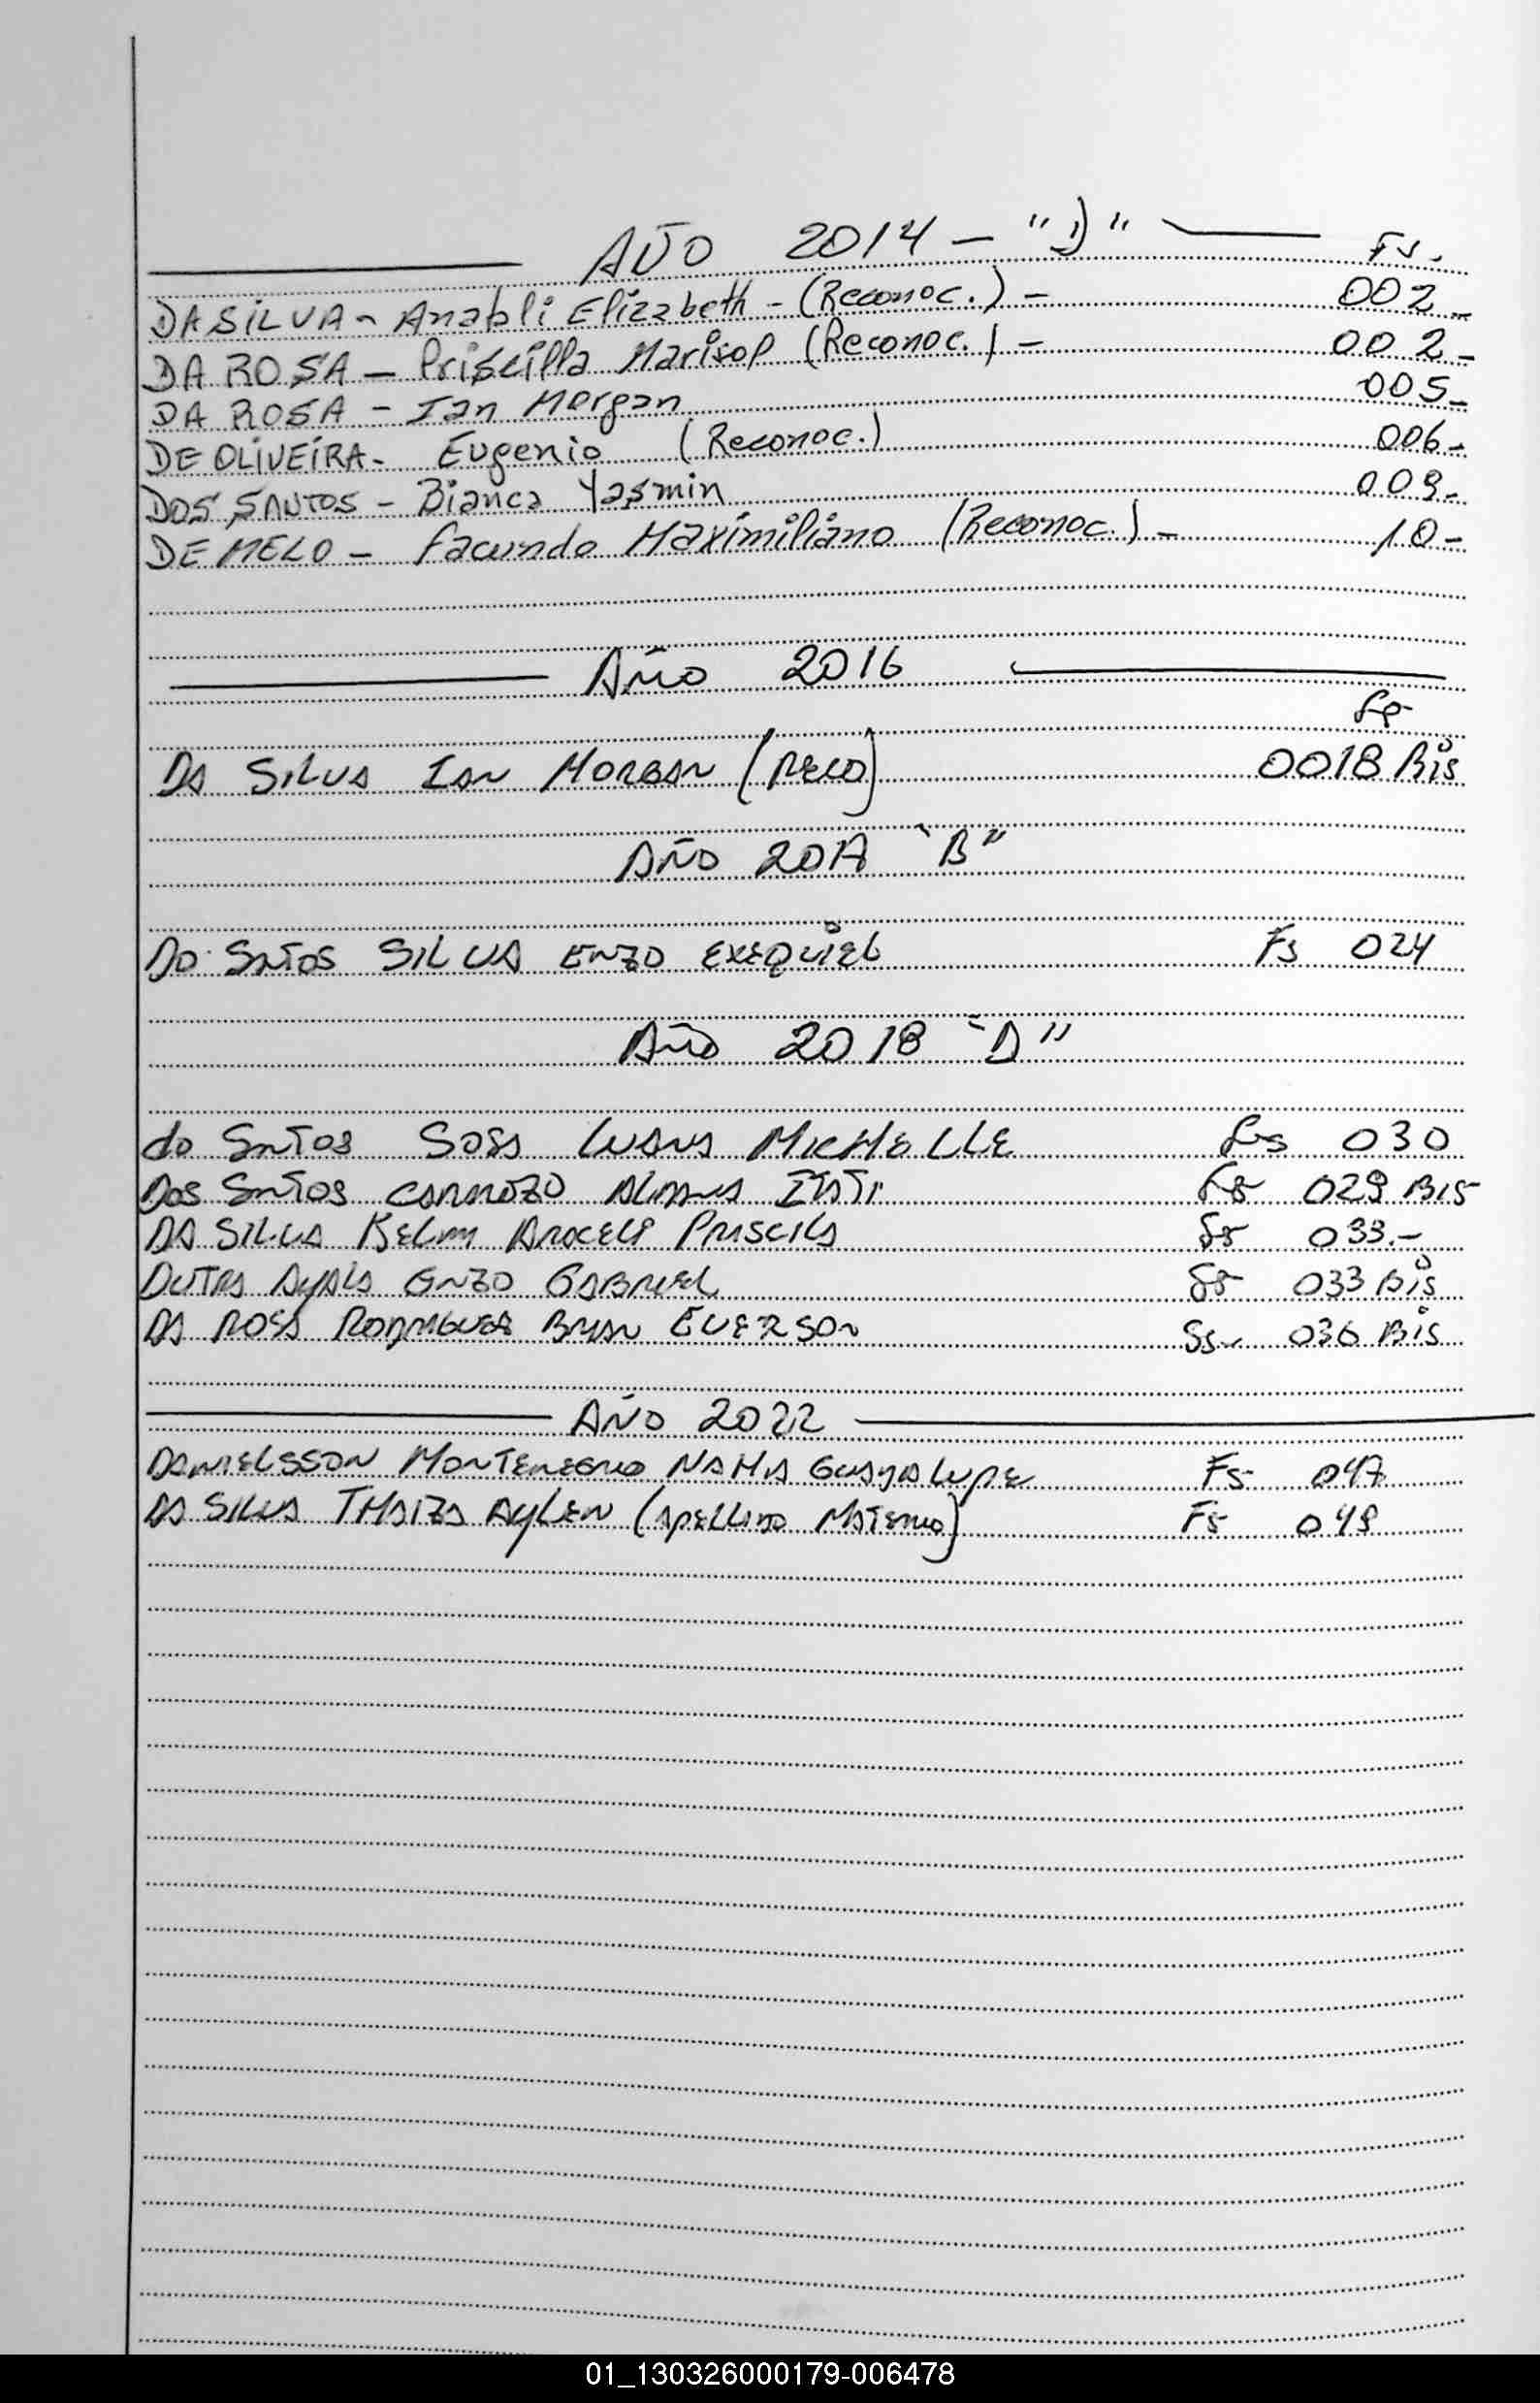 AÑO 2014 - "D" Fs.
DA SILVA - Anabli Elizabeth - (Reconoc.) - 002-
DA ROSA - Priscilla Marisol (Reconoc.) - 002-
DA ROSA - Ian Morgan 005-
DE OLIVEIRA - Eugenio (Reconoc.) 006-
DOS SANTOS - Bianca Yasmin 009-
DE MELO - Facundo Maximiliano (Reconoc.) - 10-
Año 2016
Fs
DA SILVA IAN MORGAN (RECO) 0018 Bis
AÑO 2017
DO SATOS SILVA ENZO EXEQUIEL Fs 024
AÑO 2018 "D"
do SATOS SOSA LUANA MICHELLE Fs 030
DOS SATOS CARDOZO ITATI Fs 029 BIS
DA SILVA KELLY ARACELI PRISCILA Fs 033.-
DUTRA AYALA ENZO GABRIEL Fs 033 Bis
DA ROSA RODRIGUEZ BRIAN EVERSON Fs 036 Bis
AÑO 2022
DANIELSSON MONTENEGRO NAHIA GUADALUPE Fs 047
DA SILVA THAIZA AYLEN (APELLIDO MATERNO) Fs 049
01_130326000179-006478